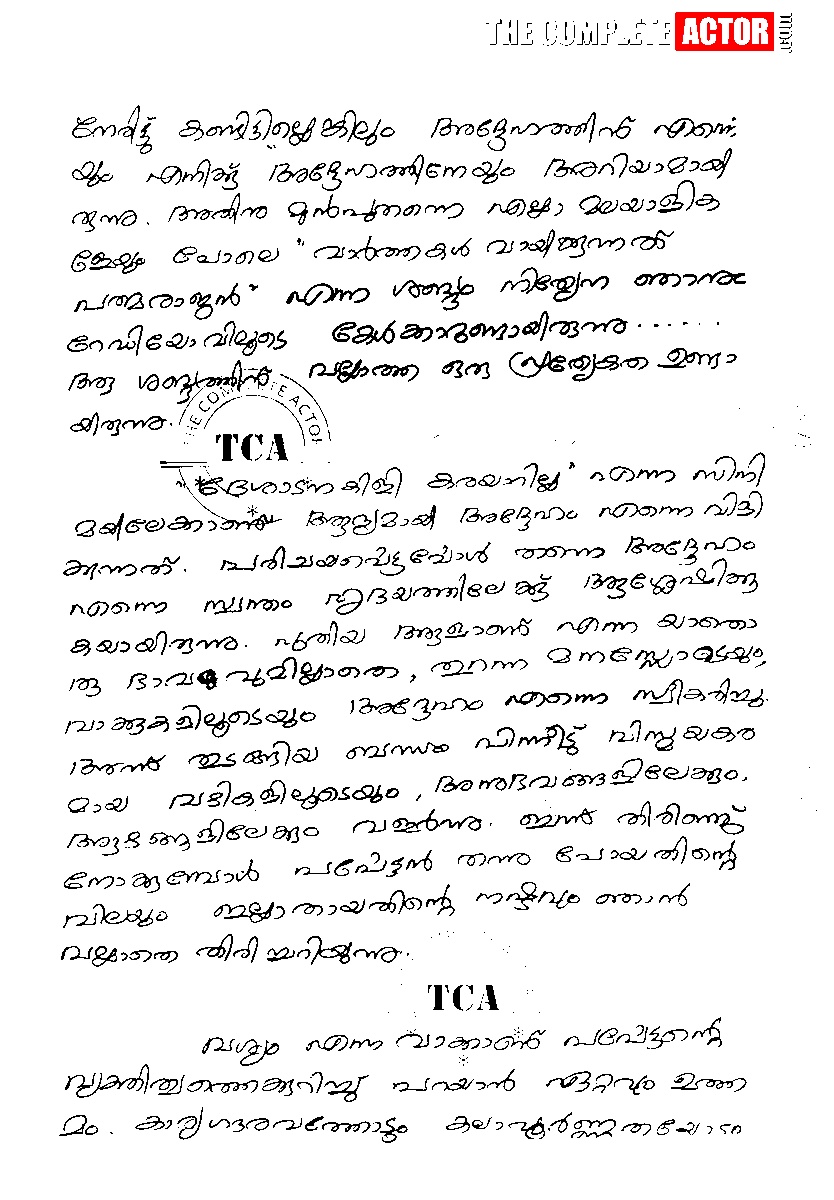 THE COMPLETE ACTOR
നേരിട്ട് കണ്ടിട്ടില്ലെങ്കിലും അദ്ദേഹത്തിന് എന്നെ
യും എനിക്ക് അദ്ദേഹത്തിനേയും അറിയാമായി
രുന്നു. അതിനു മുൻപുതന്നെ എല്ലാ മലയാളിക
ളേയും പോലെ "വാർത്തകൾ വായിക്കുന്നത്
പത്മരാജൻ" എന്ന ശബ്ദം നിത്യേന ഞാനും
റേഡിയോവിലൂടെ കേൾക്കാറുണ്ടായിരുന്നു......
ആ ശബ്ദത്തിന് വല്ലാത്ത ഒരു പ്രത്യേകത ഉണ്ടാ
യിരുന്നു.
THE COMPLETE ACTOR
TCA
"ദേശാടനകിളി കരയാറില്ല" എന്ന സിനി
മയിലേക്കാണ് ആദ്യമായി അദ്ദേഹം എന്നെ വിളി
ക്കുന്നത്. പരിചയപ്പെട്ടപ്പോൾ തന്നെ അദ്ദേഹം
എന്നെ സ്വന്തം ഹൃദയത്തിലേക്ക് ആശ്ലേഷിക്കു
കയായിരുന്നു. പുതിയ ആളാണ് എന്ന യാതൊ
രു ഭാവവുമില്ലാതെ, തുറന്ന മനസ്സോടെയും,
വാക്കുകളിലൂടെയും അദ്ദേഹം എന്നെ സ്വീകരിച്ചു.
അന്ന് തുടങ്ങിയ ബന്ധം പിന്നീട് വിസ്മയകര
മായ വഴികളിലൂടെയും, അനുഭവങ്ങളിലേക്കും,
ആഴങ്ങളിലേക്കും വളർന്നു. ഇന്ന് തിരിഞ്ഞ്
നോക്കുമ്പോൾ പപ്പേട്ടൻ തന്നു പോയതിന്റെ
വിലയും ഇല്ലാതായതിന്റെ നഷ്ടവും ഞാൻ
വല്ലാതെ തിരിച്ചറിയുന്നു.
TCA
വശ്യം എന്ന വാക്കാണ് പപ്പേട്ടന്റെ
വ്യക്തിത്വത്തെക്കുറിച്ച് പറയാൻ ഏറ്റവും ഉത്ത
മം. കാര്യഗൗരവത്തോടും കലാപൂർണ്ണതയോടും